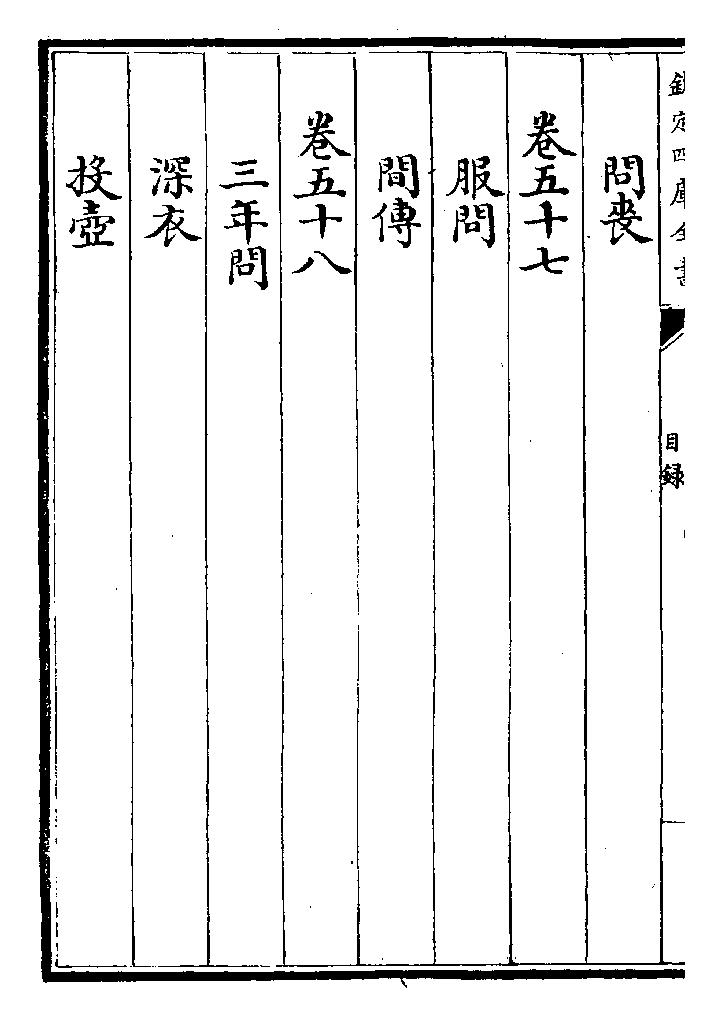 欽定四庫全書
目録
問喪
卷五十七
服問
間傳
卷五十八
三年問
深衣
投壺